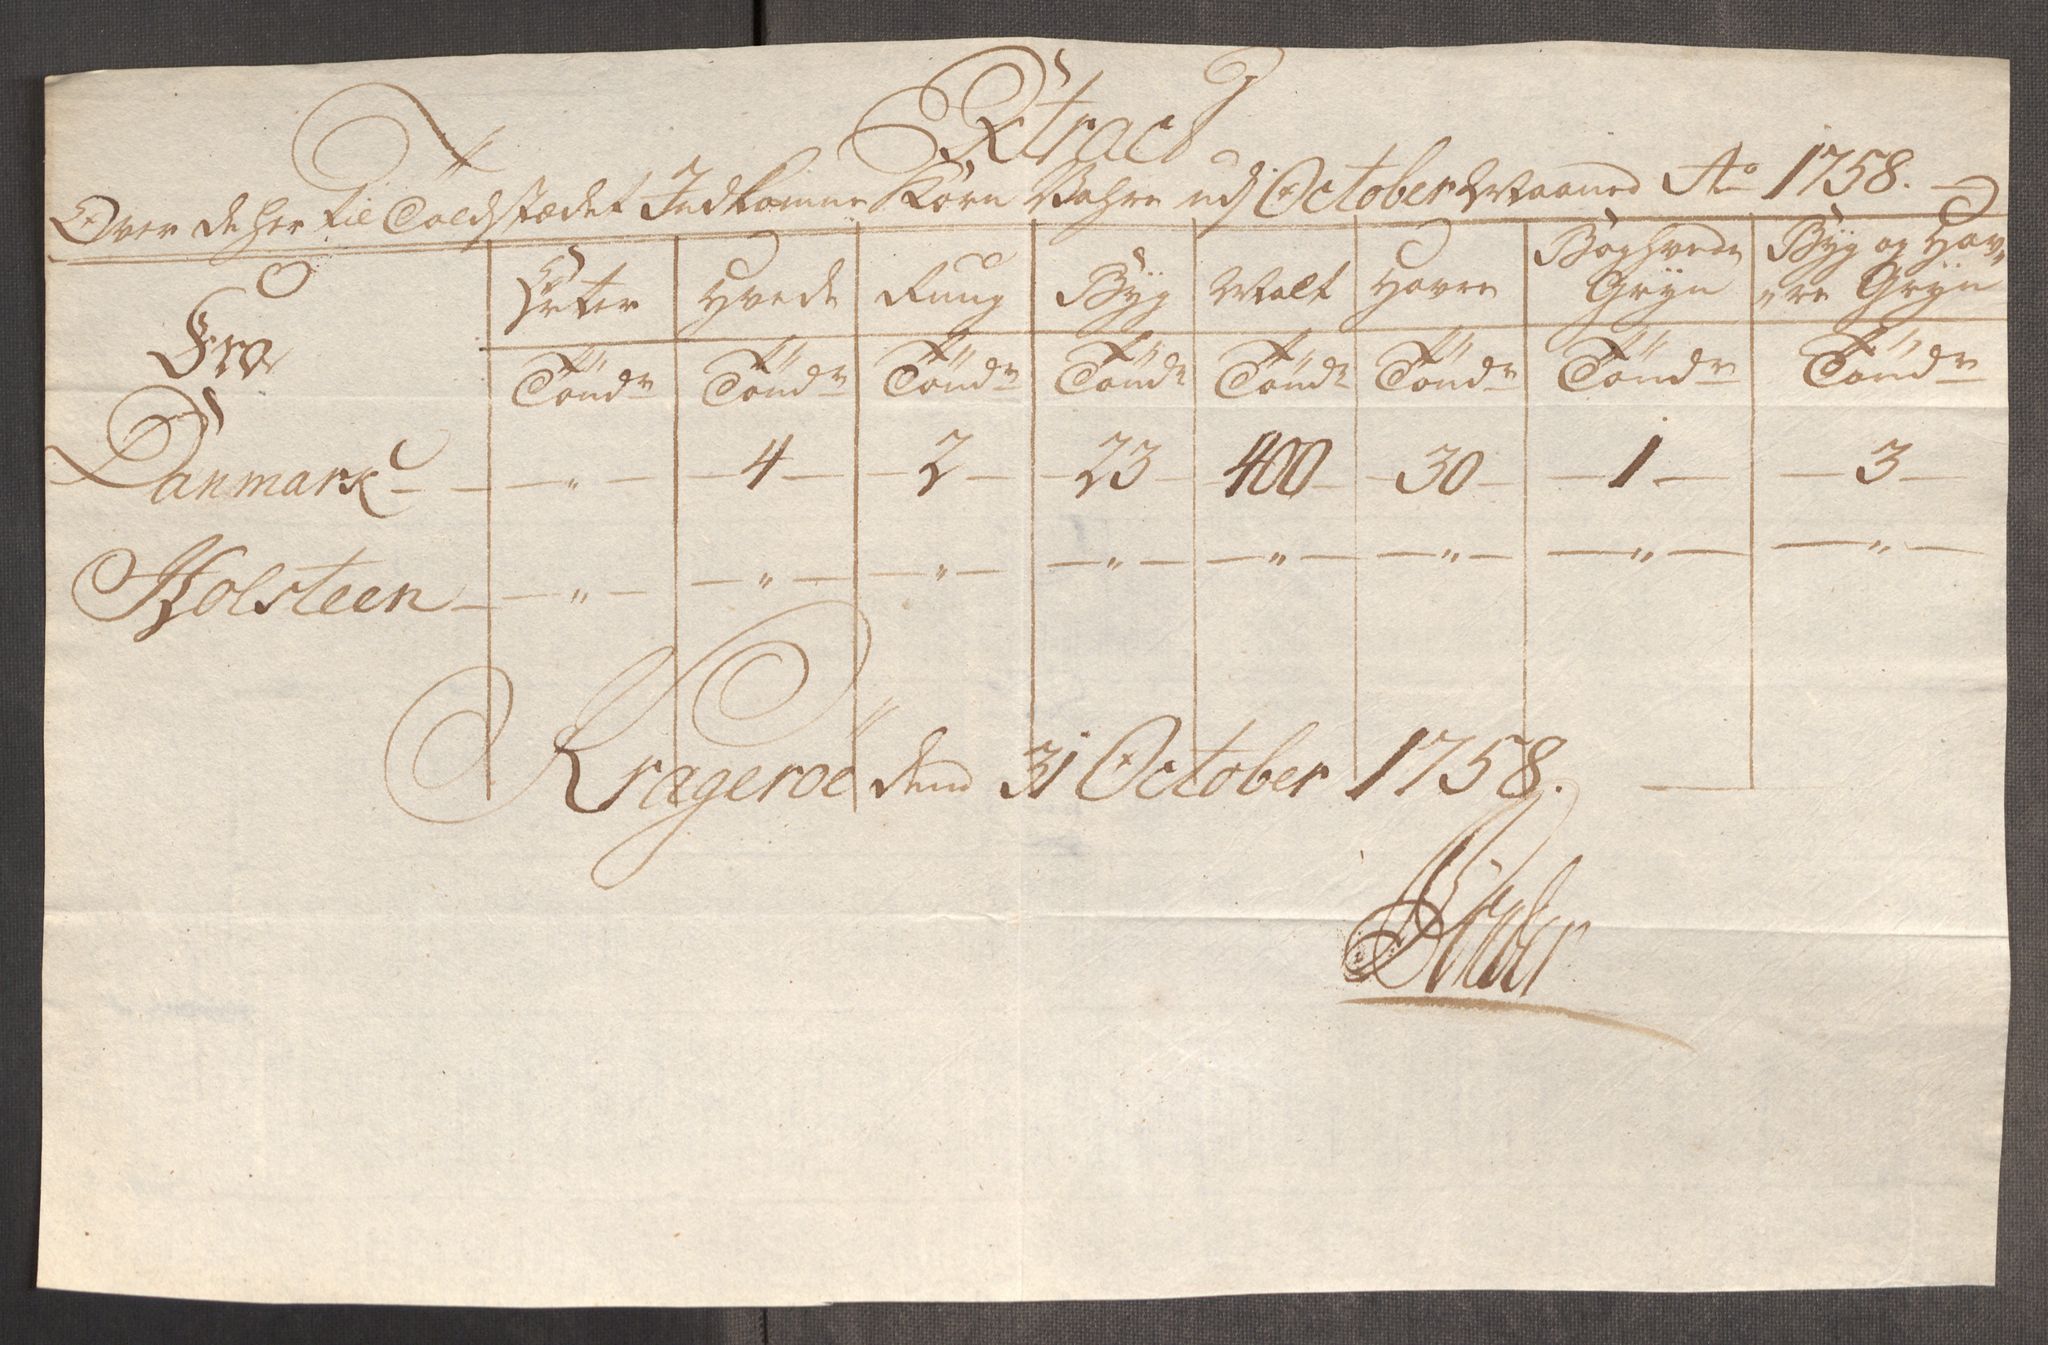 Extract
Over de her til Toldstædet Indkomne Korn Vahre udj October Maaned Ao 1758.
Fra Erter Hvede Rung Byg Malt Havre Boghvede Gryn Byg og Hav„
„re Gryn
Tönder Tönder Tönder Tönder Tönder Tönder Tönder Tönder
Danmark — „ — 4 — 2 — 23 — 400 — 30 — 1 — 3 —
Holsteen — „ — „ — „ — „ — „ — „ — „ — „ —
Krageroe dend 31 October 1758.